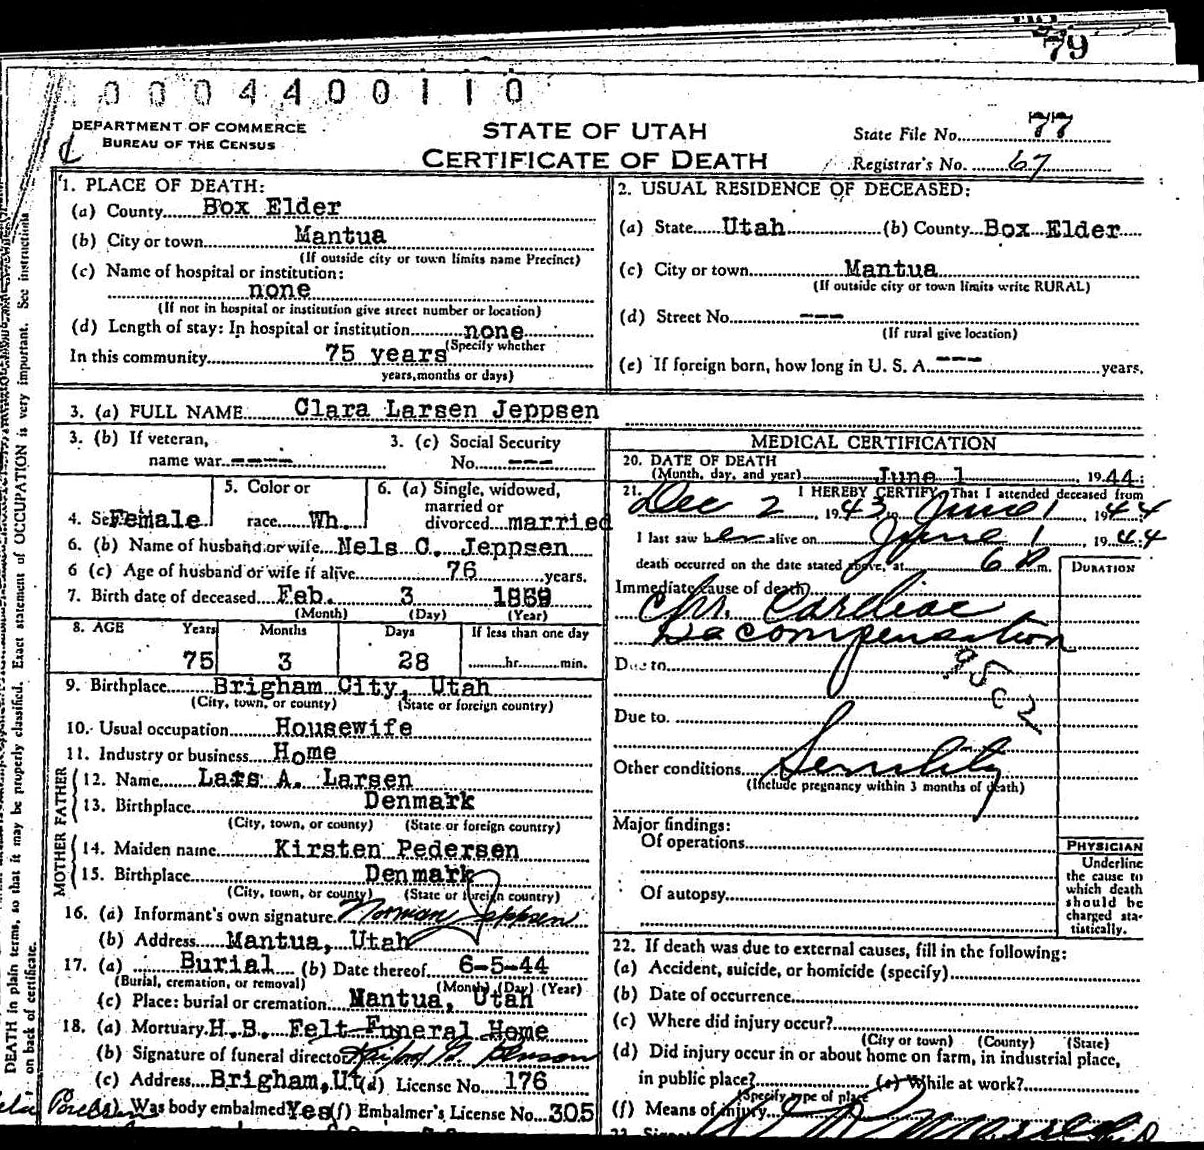 79
0004400110
DEPARTMENT OF COMMERCE
BUREAU OF THE CENSUS
STATE OF UTAH
CERTIFICATE OF DEATH
State File No. 77
Registrar's No. 67
1. PLACE OF DEATH:
(a) County Box Elder
(b) City or town Mantua
(If outside city or town limits name Precinct)
(c) Name of hospital or institution:
none
(If not in hospital or institution give street number or location)
(d) Length of stay: In hospital or institution none
(Specify whether
In this community 75 years
years, months or days)
2. USUAL RESIDENCE OF DECEASED:
(a) State Utah (b) County Box Elder
(c) City or town Mantua
(If outside city or town limits write RURAL)
(d) Street No. ---
(If rural give location)
(e) If foreign born, how long in U. S. A. --- years.
3. (a) FULL NAME Clara Larsen Jeppsen
3. (b) If veteran,
name war ----
3. (c) Social Security
No. ---
4. Sex Female
5. Color or
race Wh.
6. (a) Single, widowed,
married or
divorced married
6. (b) Name of husband or wife Nels C. Jeppsen
6 (c) Age of husband or wife if alive 76 years.
7. Birth date of deceased Feb. 3 1869
(Month) (Day) (Year)
8. AGE Years Months Days If less than one day
75 3 28 hr. min.
9. Birthplace Brigham City, Utah
(City, town, or county) (State or foreign country)
10. Usual occupation Housewife
11. Industry or business Home
FATHER
12. Name Lars A. Larsen
13. Birthplace Denmark
(City, town, or county) (State or foreign country)
MOTHER
14. Maiden name Kirsten Pedersen
15. Birthplace Denmark
(City, town, or county) (State or foreign country)
16. (a) Informant's own signature Norman Jeppsen
(b) Address Mantua, Utah
17. (a) Burial (b) Date thereof 6-5-44
(Burial, cremation, or removal) (Month) (Day) (Year)
(c) Place: burial or cremation Mantua, Utah
18. (a) Mortuary H.B. Felt Funeral Home
(b) Signature of funeral director
(c) Address Brigham, Ut (d) License No. 176
Was body embalmed Yes (f) Embalmer's License No. 305
MEDICAL CERTIFICATION
20. DATE OF DEATH
(Month, day, and year) June 1, 1944
21. I HEREBY CERTIFY, That I attended deceased from
Dec 2 1943 to June 1, 1944
I last saw her alive on June 1, 1944
death occurred on the date stated above, at 6 P m.
DURATION
Immediate cause of death
Chr. Cardiac
Decompensation
Due to
95c2
Due to.
Other conditions Senility
(Include pregnancy within 3 months of death)
Major findings:
Of operations
Of autopsy
PHYSICIAN
Underline
the cause to
which death
should be
charged sta-
tistically.
22. If death was due to external causes, fill in the following:
(a) Accident, suicide, or homicide (specify)
(b) Date of occurrence
(c) Where did injury occur?
(City or town) (County) (State)
(d) Did injury occur in or about home on farm, in industrial place,
in public place? (e) While at work?
(Specify type of place)
(f) Means of injury
DEATH in plain terms, so that it may be properly classified. Exact statement of OCCUPATION is very important. See instructions
on back of certificate.